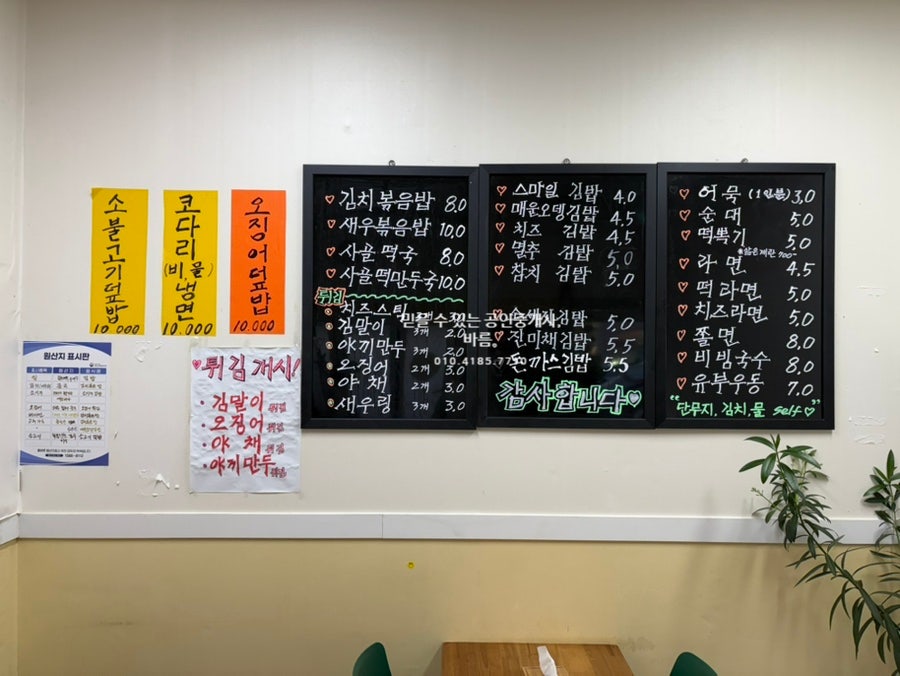 소불고기덮밥
10,000
코다리
(비,물)
냉면
10.000
오징어덮밥
10.000
원산지 표시판
튀김개시!
· 김말이 튀김
· 오징어 튀김
· 야 채 튀김
· 야끼만두 튀김
♡ 김치볶음밥 8.0
♡ 새우볶음밥 10.0
♡ 사골 떡국 8.0
♡ 사골떡만두국 10.0
튀김
치즈스틱
김말이 3개 2.0
야끼만두 3개 2.0
오징어 2개 3.0
야 채 2개 3.0
새우링 3개 3.0
♡ 스마일 김밥 4.0
♡ 매운오뎅김밥 4.5
♡ 치즈 김밥 4.5
♡ 멸추 김밥 5.0
♡ 참치 김밥 5.0
김밥 5.0
진미채김밥 5.5
돈까스김밥 5.5
감사합니다♡
믿을 수 있는 공인중개사
바름
010.4185.77
♡ 어묵 (1인분) 3.0
♡ 순대 5.0
♡ 떡볶기 5.0
※삶은계란 700
♡ 라면 4.5
♡ 떡라면 5.0
♡ 치즈라면 5.0
♡ 쫄면 8.0
♡ 비빔국수 8.0
♡ 유부우동 7.0
"단무지, 김치,물 self♡"